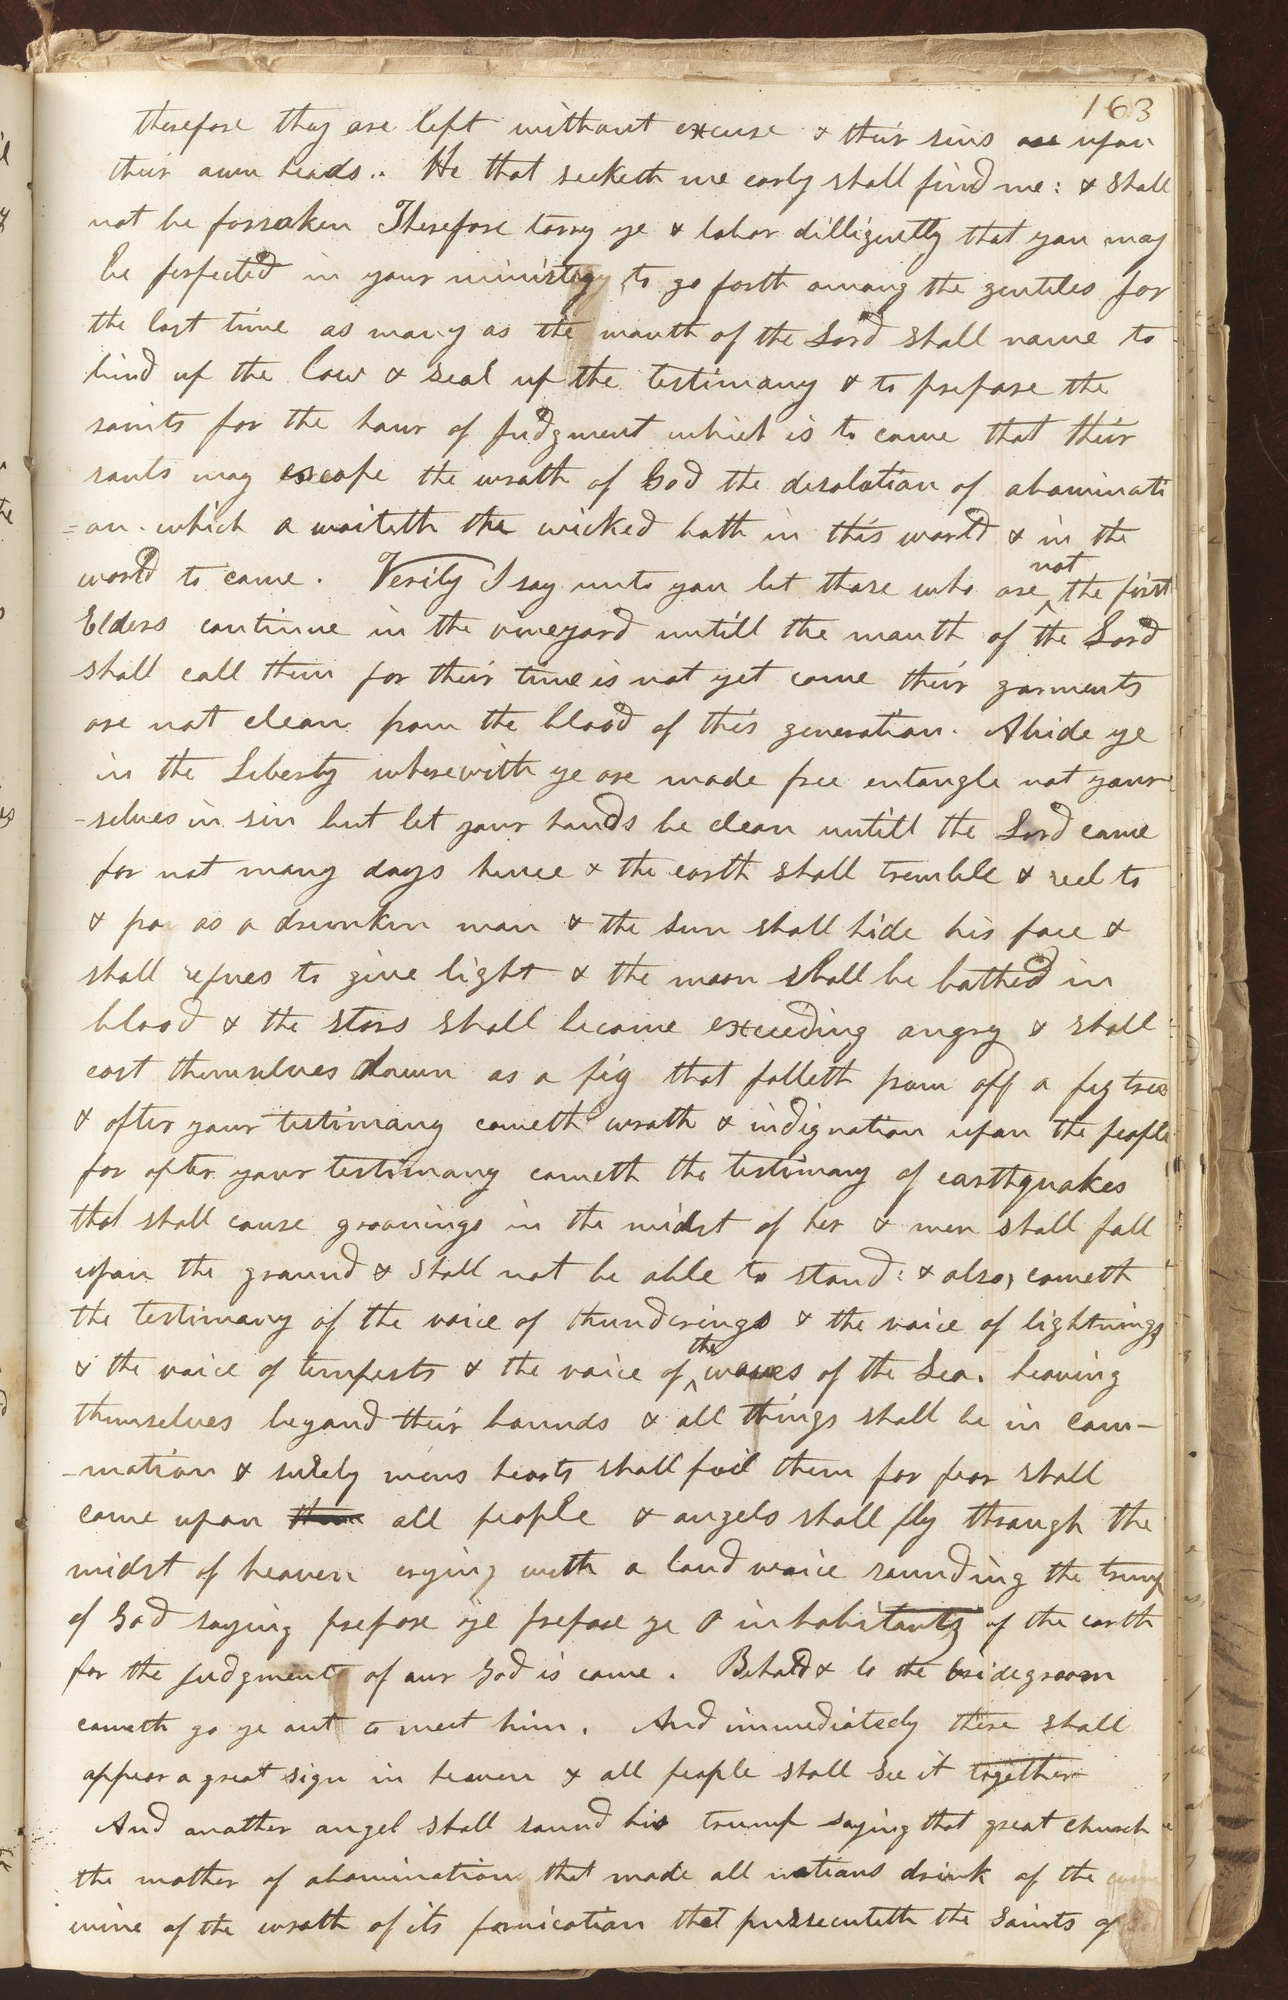 163
therefore they are left without excuse & their sins are upon
their own heads.. He that seeketh me early shall find me: & shall
not be forsaken Therefore tarry ye & labor dilligently that you may
be perfected in your ministry to go forth among the gentiles for
the last time as many as the mouth of the Lord shall name to
bind up the law & seal up the testimony & to prepare the
saints for the hour of judgment which is to come that their
souls may escape the wrath of God the desolation of abominati
=on. which a waiteth the wicked both in this world & in the
world to come. Verily I say unto you let those who are not the first
Elders continue in the vineyard untill the mouth of the Lord
shall call them for their time is not yet come their garments
are not clean from the blood of this generation. Abide ye
in the Liberty wherewith ye are made free entangle not your
-selves in sin but let your hands be clean untill the Lord come
for not many days hence & the earth shall tremble & reel to
& fro as a drunken man & the sun shall hide his face &
shall refues to give light & the moon shall be bathed in
blood & the stars shall become exceeding angry & shall
cast themselves down as a fig that falleth from off a fig tree
& after your testimony cometh wrath & indignation upon the people
for after your testimony cometh the testimony of earthquakes
that shall cause groanings in the midst of her & men shall fall
upon the ground & shall not be able to stand: & also, cometh
the testimony of the voice of thunderings & the voice of lightnings
& the voice of tempests & the voice of the waves of the Sea. heaving
themselves beyond their bounds & all things shall be in com-
-motion & surely mens hearts shall fail them for fear shall
come upon them all people & angels shall fly through the
midst of heaven crying with a loud voice sounding the trump
of God saying prepare ye prepare ye O inhabitants of the earth
for the judgment of our God is come. Behold & lo the bridegroom
cometh go ye out to meet him. And immediately there shall
appear a great sign in heaven & all people shall see it together
And another angel shall sound his trump saying that great church
the mother of abomination that made all nations drink of the
wine of the wrath of its fornication that pursecuteth the Saints of